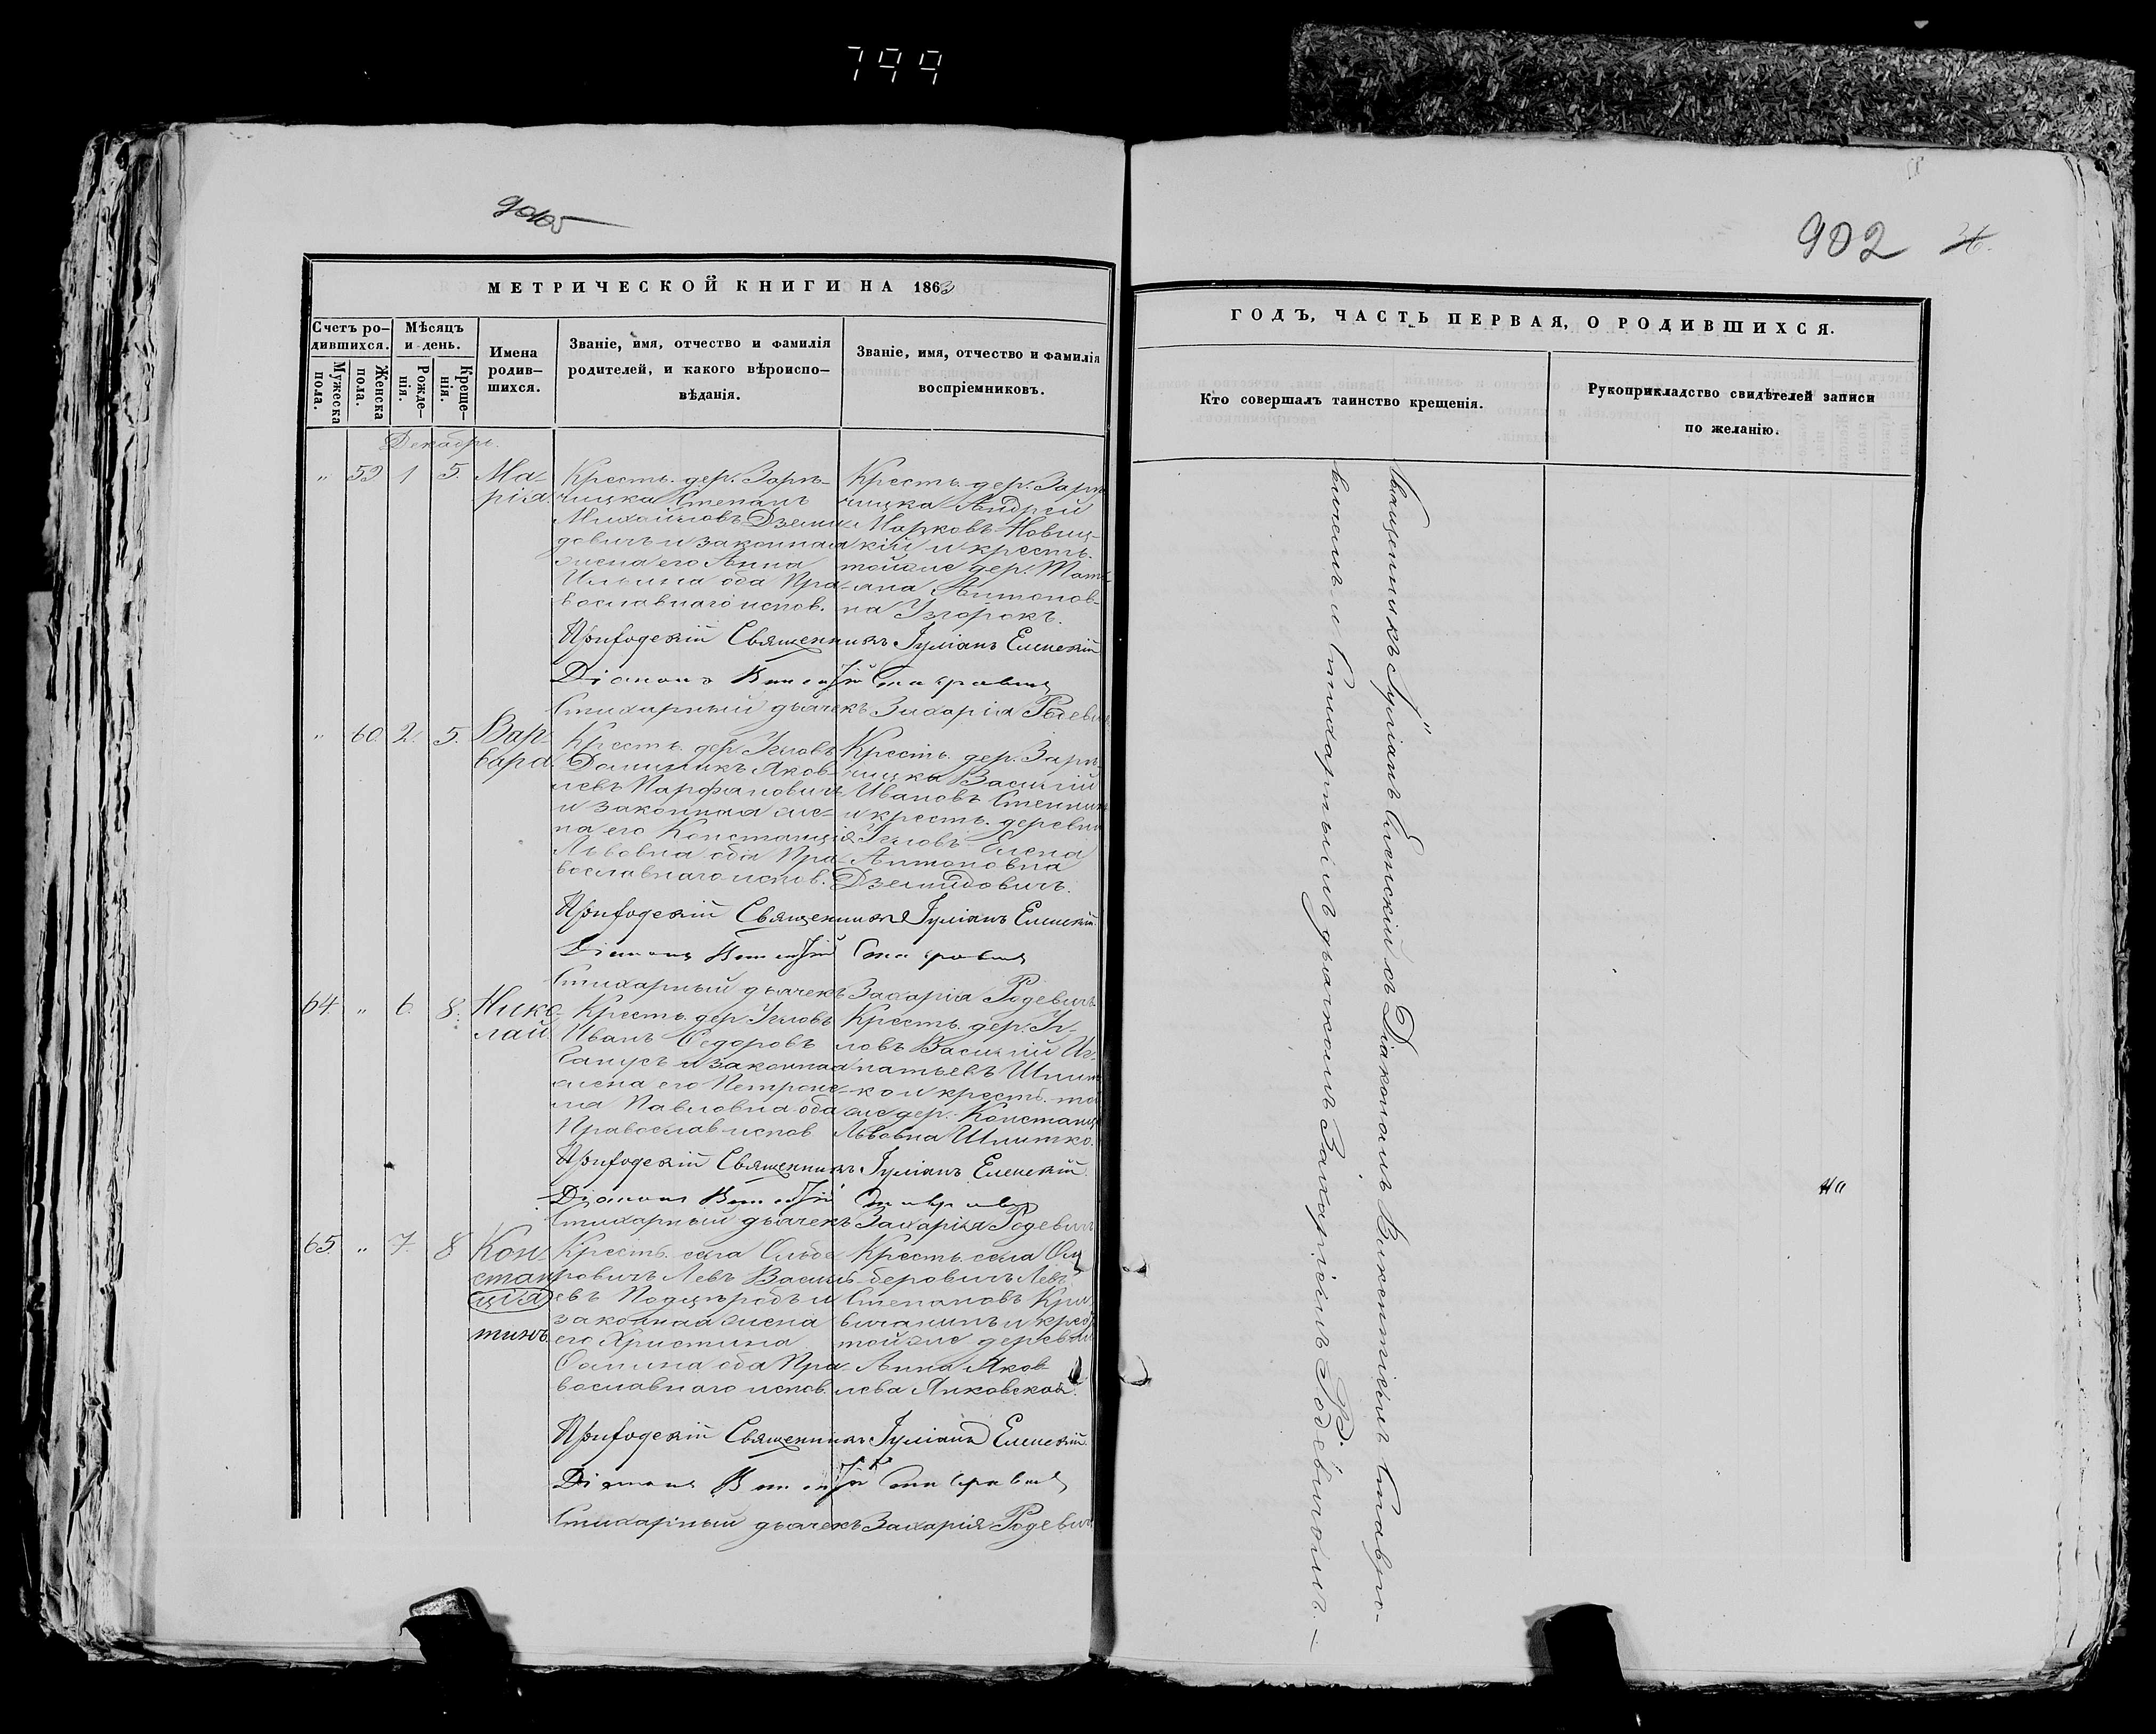 799
902
МЕТРИЧЕСКОЙ КНИГИ НА 1863
ГОДЪ, ЧАСТЬ ПЕРВАЯ, О РОДИВШИХСЯ.
Счетъ ро-
дившихся.
Мужеска
пола.
Женска
пола.
Мѣсяцъ
и день.
Рожде-
нія.
Креще-
нія.
Имена
родив-
шихся.
Званіе, имя, отчество и фамилія
родителей, и какого вѣроиспо-
вѣданія.
Званіе, имя, отчество и фамилія
воспріемниковъ.
Кто совершалъ таинство крещенія.
Рукоприкладство свидѣтелей записи
по желанію.
Декабрь.
" 59 1 5.
Ма-
рія.
Крестъ. дер. Зарѣ-
чицка Степанъ
Михайловъ Дземи-
довичъ и законная
жена его Анна
Ильина оба Пра-
вославнаго испов.
Крестъ. дер. Зарѣ-
чицка Андрей
Марковъ Новиц-
кій и крестъ.
тойже дер. Тать-
яна Антонов-
на Узгорокъ.
Приходскій Священникъ Іуліанъ Еленскій
Діаконъ
Стихарный дьячекъ Захарія Родевичъ
" 60. 2. 5.
Вар-
вара.
Крестъ. дер. Угловъ
Доминикъ Яков-
левъ Парфановичъ
и законная же-
на его Констанція
Львовна оба Пра-
вославнаго испов.
Крестъ. дер. Зарѣ-
чицка Василій
Ивановъ
и крестъ. деревни
Угловъ Елена
Антоновна
Дземидовичъ.
Приходскій Священникъ Іуліанъ Еленскій.
Діаконъ
Стихарный дьячекъ Захарія Родевичъ
64 " 6. 8.
Нико-
лай.
Крестъ. дер. Угловъ
Иванъ Ѳедоровъ
и законная
жена его Петроне-
ля Павловна оба
Православ испов
Крестъ. дер. Уг-
ловъ Василій Иг-
натьевъ Шпит-
ко и крестъ. той
же дер. Констанція
Львовна Шпитко.
Приходскій Священникъ Іуліанъ Еленскій.
Діаконъ
Стихарный дьячекъ Захарія Родевичъ
65. " 7. 8
Кон-
стан
ція
тинъ.
Крестъ. села Ольбе-
ровичъ Левъ Василь-
евъ и
законная жена
его Христина
Ѳомина оба Пра-
вославнаго испов.
Крестъ. села Оль
беровичъ Левъ
Степановъ Кри-
вичанинъ и крест
тойже деревни
Анна Яков-
лева Янковская.
Приходскій Священникъ Іуліанъ Еленскій.
Діаконъ
Стихарный дьячекъ Захарія Родевичъ
Священникъ Іуліанъ Еленскій съ Діакономъ Викентіемъ Ставро-
вичемъ и Стихарнымъ дьячкомъ Захаріемъ Родевичомъ. —